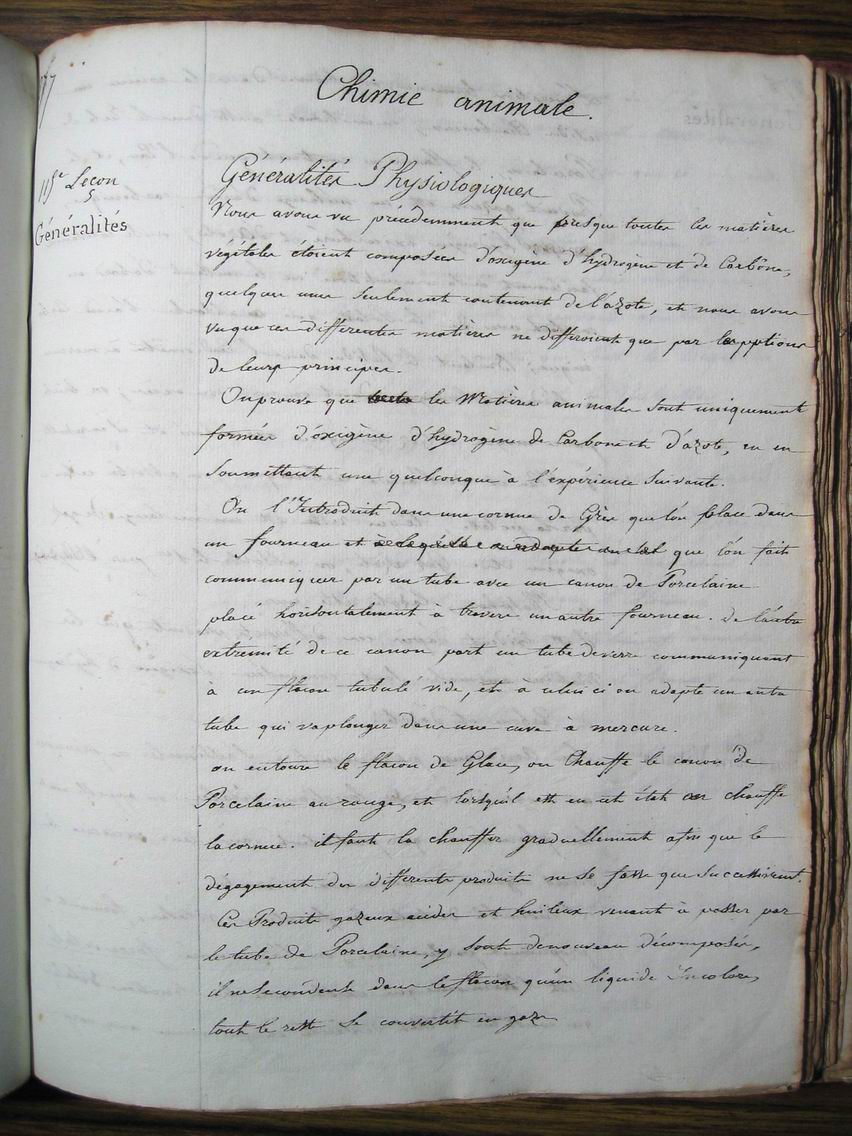 Chimie animale.
115e Leçon
Généralités
Généralités Physiologiques
Nous avons vu precedemment que presque toutes les matières
végétales étoient composées d'oxigène d'hydrogène et de Carbône,
quelques unes seulement contenant de l'azote, et nous avons
vu que ces differentes matières ne differoient que par les
de leurs principes.
On prouve que les Matières animales sont uniquement
formées d'oxigène d'hydrogène de Carbone et d'azote, en en
soumettant une quelconque à l'expérience suivante.
On l'Introduit dans une cornue de Grès que l'on place dans
un fourneau et que l'on fait
communiquer par un tube avec un canon de Porcelaine
placé horisontalement à travers un autre fourneau. de l'autre
extremité de ce canon part un tube de verre communiquant
à un flacon tubulé vide, et à celui ci on adapte un autre
tube qui va plonger dans une cuve à mercure.
on entoure le flacon de Glace, on Chauffe le canon de
Porcelaine au rouge, et lorsqu'il est en cet état on chauffe
la cornue. il faut la chauffer graduellement afin que le
dégagement des differents produits ne se fasse que successivement.
Ces Produits gazeux acides et huileux venant à passer par
le tube de Porcelaine, y sont denouveau décomposés,
il ne se condense dans le flacon qu'un liquide Incolore,
tout le reste se convertit en gaz